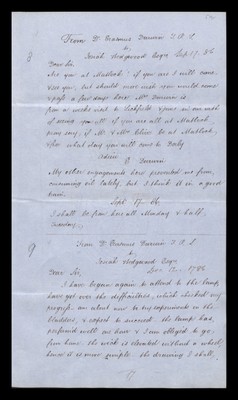 8
From Dr Erasmus Darwin F.R.S
to
Josiah Wedgwood Esqre Sept 17. 86
Dear Sir
Are you at Matlock? if you are I will come
& see you, but should more wish you would come
& pass a few days here. Mrs Darwin is
from a weeks visit to Lichfield & joins me in
of seeing you all if you are all at Matlock.
pray say, if Mr & Mrs Clive be at Matlock,
& the what day you will come to Derby
adieu
E Darwin
My other engagements have prevented me from
communing with lately, but I think it in a good
train.
Sept 17 – 86.
I shall be from home all Monday & half
Tuesday.
9
From Dr Erasmus Darwin F.R.S
to
Josiah Wedgwood Esqre
Dec 12 – 1786
Dear Sir,
I have begun again to attend to the lamp
have got over the difficulties, which checked my
progress. am about now to try experiments on the
bladders, & expect to succeed. the lamp has
performed well an hour & I am obliged to go
from home. the wick is elevated without a wheel,
hence it is more simple. the drawing I shall